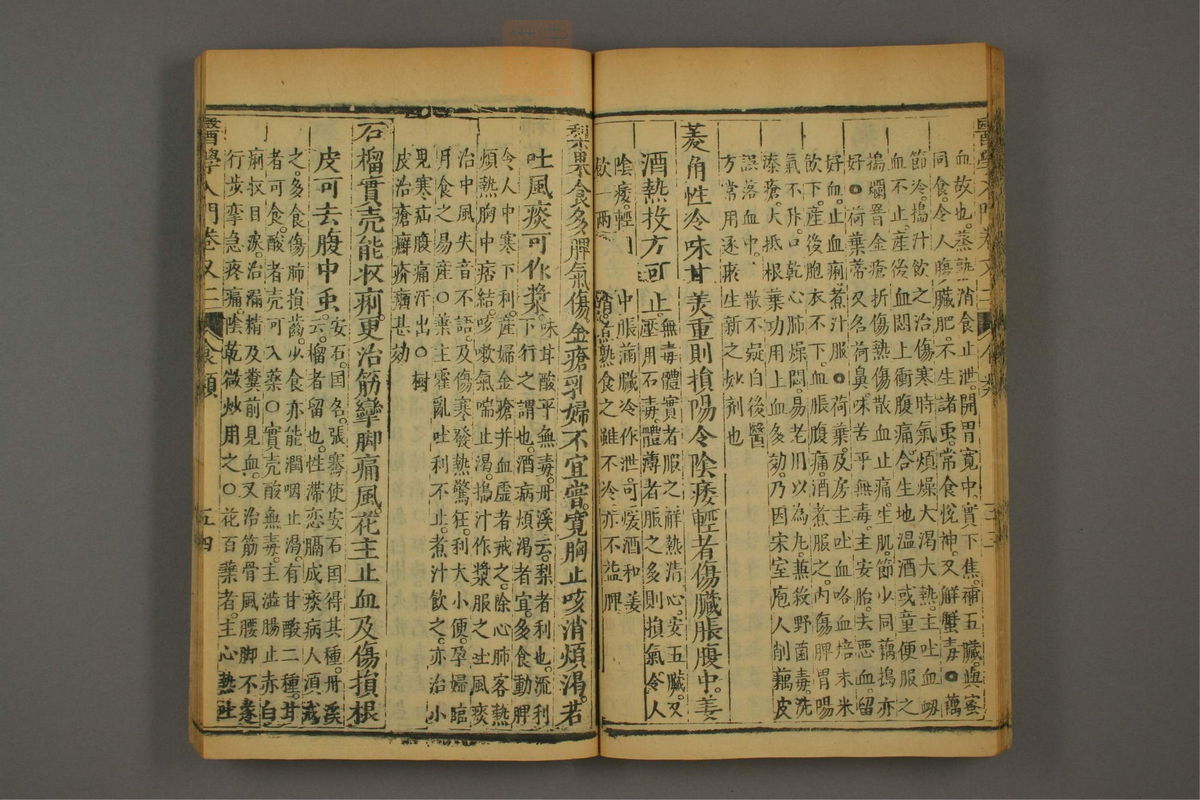 血故也蒸熟消食止泄開胃寬中實下焦補五臟與蜜
同食令人腹臟肥不生諸虫常食悅神又解蟹毒○藕
節冷搗汁飲之治傷寒時氣煩燥大渴大熱主吐血衂
血不止產後血悶上衝腹痛合生地温酒或童便服之
搗爛罯金瘡折傷熱傷散血止痛生肌節少同藕搗亦
好○荷葉蒂又名荷鼻味苦平無毒主安胎去惡血留
好血止血痢煮汁服○荷葉及房主吐血咯血焙末米
飲下產後胞衣不下血脹腹痛酒煮服之內傷脾胃陽
氣不升口乾心肺燥悶易老用以為丸兼殺野菌毒洗
漆瘡大抵根葉功用上血多効乃因宋室庖人削藕皮
誤落血中散不凝自後醫
方常用逐瘀生新之妙劑也
菱角性冷味甘美重則損陽令陰痿輕者傷臟脹腹中姜
酒熱投方可止無毒體實者服之解熱清心安五臟又
壓用石毒體薄者服之多則損氣令人
陰痿輕則中脹滿臟冷作泄可煖酒和姜
飲一兩消煮熟食之雖不冷亦不益脾
梨果食多脾氣傷金瘡乳婦不宜嘗寛胸止咳消煩渴若
吐風痰可作漿味甘酸平無毒丹溪云梨者利也流利
下行之謂也酒病煩渴者宜多食動脾
令人中寒下利產婦金瘡并血虛者戒之除心肺客熱
煩熱胸中痞結咳嗽氣喘止渴搗汁作漿服之吐風痰
治中風失音不語及傷寒發熱驚狂利大小便孕婦臨
月食之易產○葉主霍亂吐利不止煮汁飲之亦治小
兒寒疝腹痛汗出○樹
皮治瘡癬疥癩甚効
石榴實壳能收痢更治筋攣脚痛風花主止血及傷損根
皮可去腹中虫安石国名張騫使安石国得其種丹溪
云榴者留也性滯恋膈成痰病人須戒
之多食傷肺損齒少食亦能潤咽止渴有甘酸二種甘
者可食酸者壳可入藥○實壳酸無毒主澁腸止赤白
痢收目淚治漏精及糞前見血又治筋骨風腰脚不遂
行步攣急疼痛陰乾微炒用之○花百藥者主心熱吐
醫學入門卷又二 食類 五四